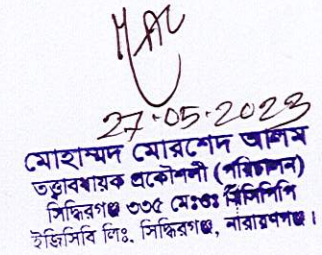 27-05-2023
মোহাম্মদ মোরশেদ আলম
তত্ত্বাবধায়ক প্রকৌশলী (পরিচালন)
সিদ্ধিরগঞ্জ ৩৩৫ মেঃওঃ সিসিপিপি
ইজিসিবি লিঃ, সিদ্ধিরগঞ্জ, নারায়ণগঞ্জ।